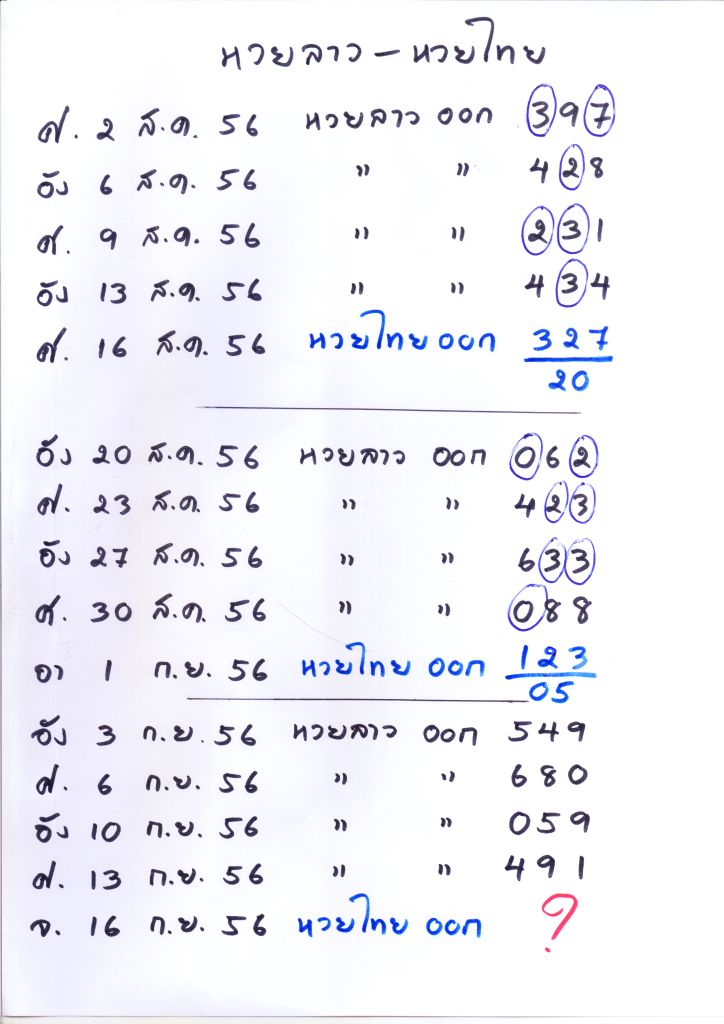 หวยลาว – หวยไทย
ศ. 2 ส.ค. 56 หวยลาว ออก 397
อัง 6 ส.ค. 56 " " 428
ศ. 9 ส.ค. 56 " " 231
อัง 13 ส.ค. 56 " " 434
ศ. 16 ส.ค. 56 หวยไทย ออก 327
20
อัง 20 ส.ค. 56 หวยลาว ออก 062
ศ. 23 ส.ค. 56 " " 423
อัง 27 ส.ค. 56 " " 633
ศ. 30 ส.ค. 56 " " 088
อา 1 ก.ย. 56 หวยไทย ออก 123
05
อัง 3 ก.ย. 56 หวยลาว ออก 549
ศ. 6 ก.ย. 56 " " 680
อัง 10 ก.ย. 56 " " 059
ศ. 13 ก.ย. 56 " " 491
จ. 16 ก.ย. 56 หวยไทย ออก ?